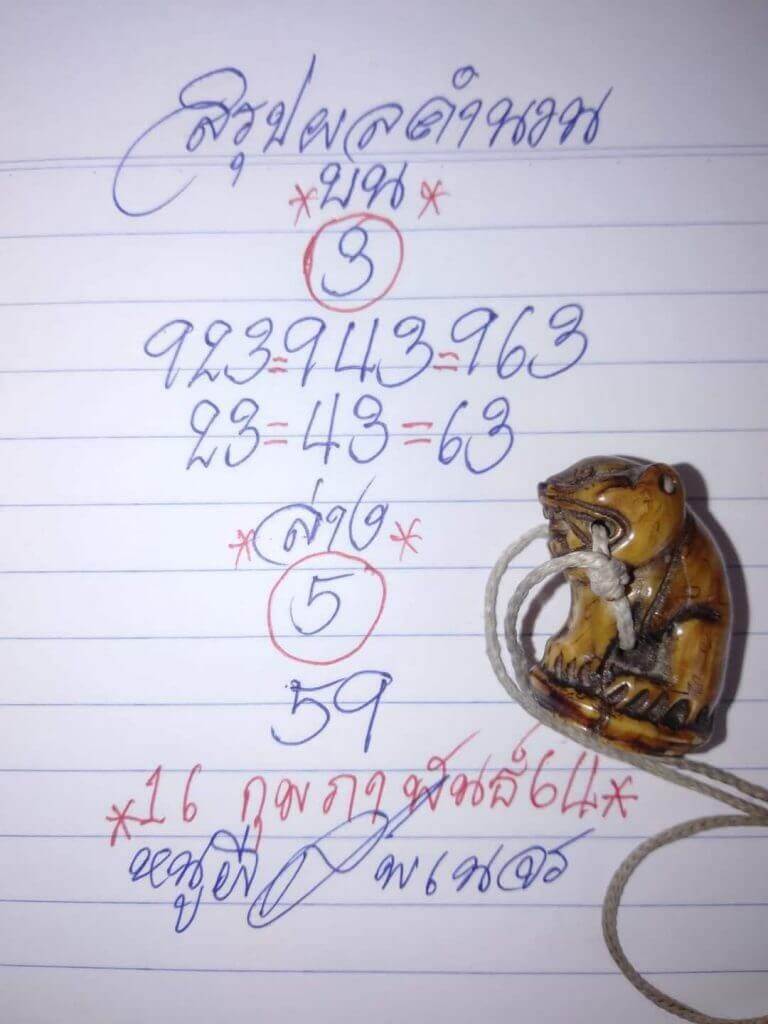 สรุปผลคำนวน
*บน*
3
923=943=963
23=43=63
*ล่าง*
5
59
*16 กุมภาพันธ์64*
หนูผี พเนจร